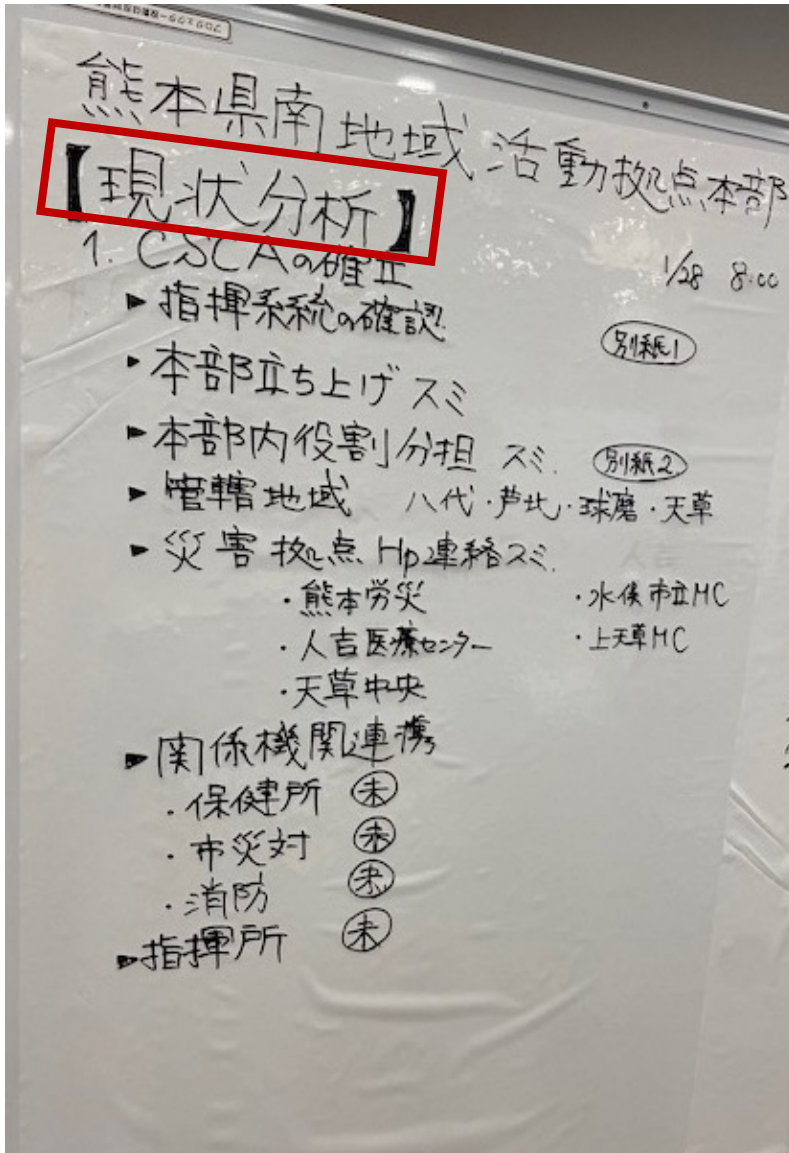 熊本県南地域活動拠点本部
【現状分析】
1. CSCAの確立
1/28 8:00
▶指揮系統の確認 別紙1
▶本部立ち上げ スミ
▶本部内役割分担 スミ. 別紙2
▶管轄地域 八代・芦北・球磨・天草
▶災害拠点Hp連絡スミ.
・熊本労災 ・水俣市立MC
・人吉医療センター ・上天草MC
・天草中央
▶関係機関連携
・保健所 未
・市災対 未
・消防 未
▶指揮所 未